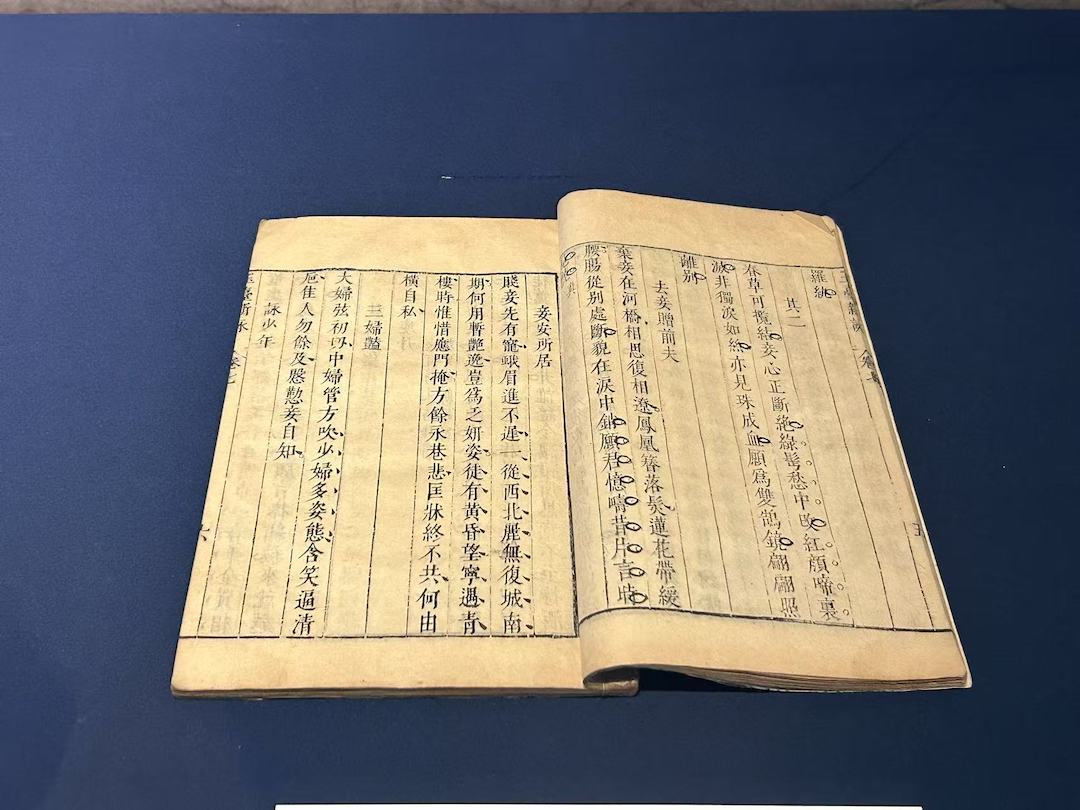 羅紈
其二
春草可攬結妾心正斷絶綠鬢愁中改紅顏啼裏
滅非獨淚如絲亦見珠成血願爲雙鵲鏡翩翩照
離別
去妾贈前夫
棄妾在河橋相思復相遼鳳凰簪落鬢蓮花帶緩
腰腸從別處斷貌在淚中銷願君憶疇昔片言時
妾安所居
賤妾先有寵蛾眉進不遲一從西北麗無復城南
期何用暫艷逸豈爲乏妍姿徒有黃昏望寧遇青
樓時惟惜應門掩方餘永巷悲匡牀終不共何由
橫自私
三婦豔
大婦弦初切中婦管方吹少婦多姿態含笑逼清
卮佳人勿餘及慇懃妾自知
詠少年
卷七
六